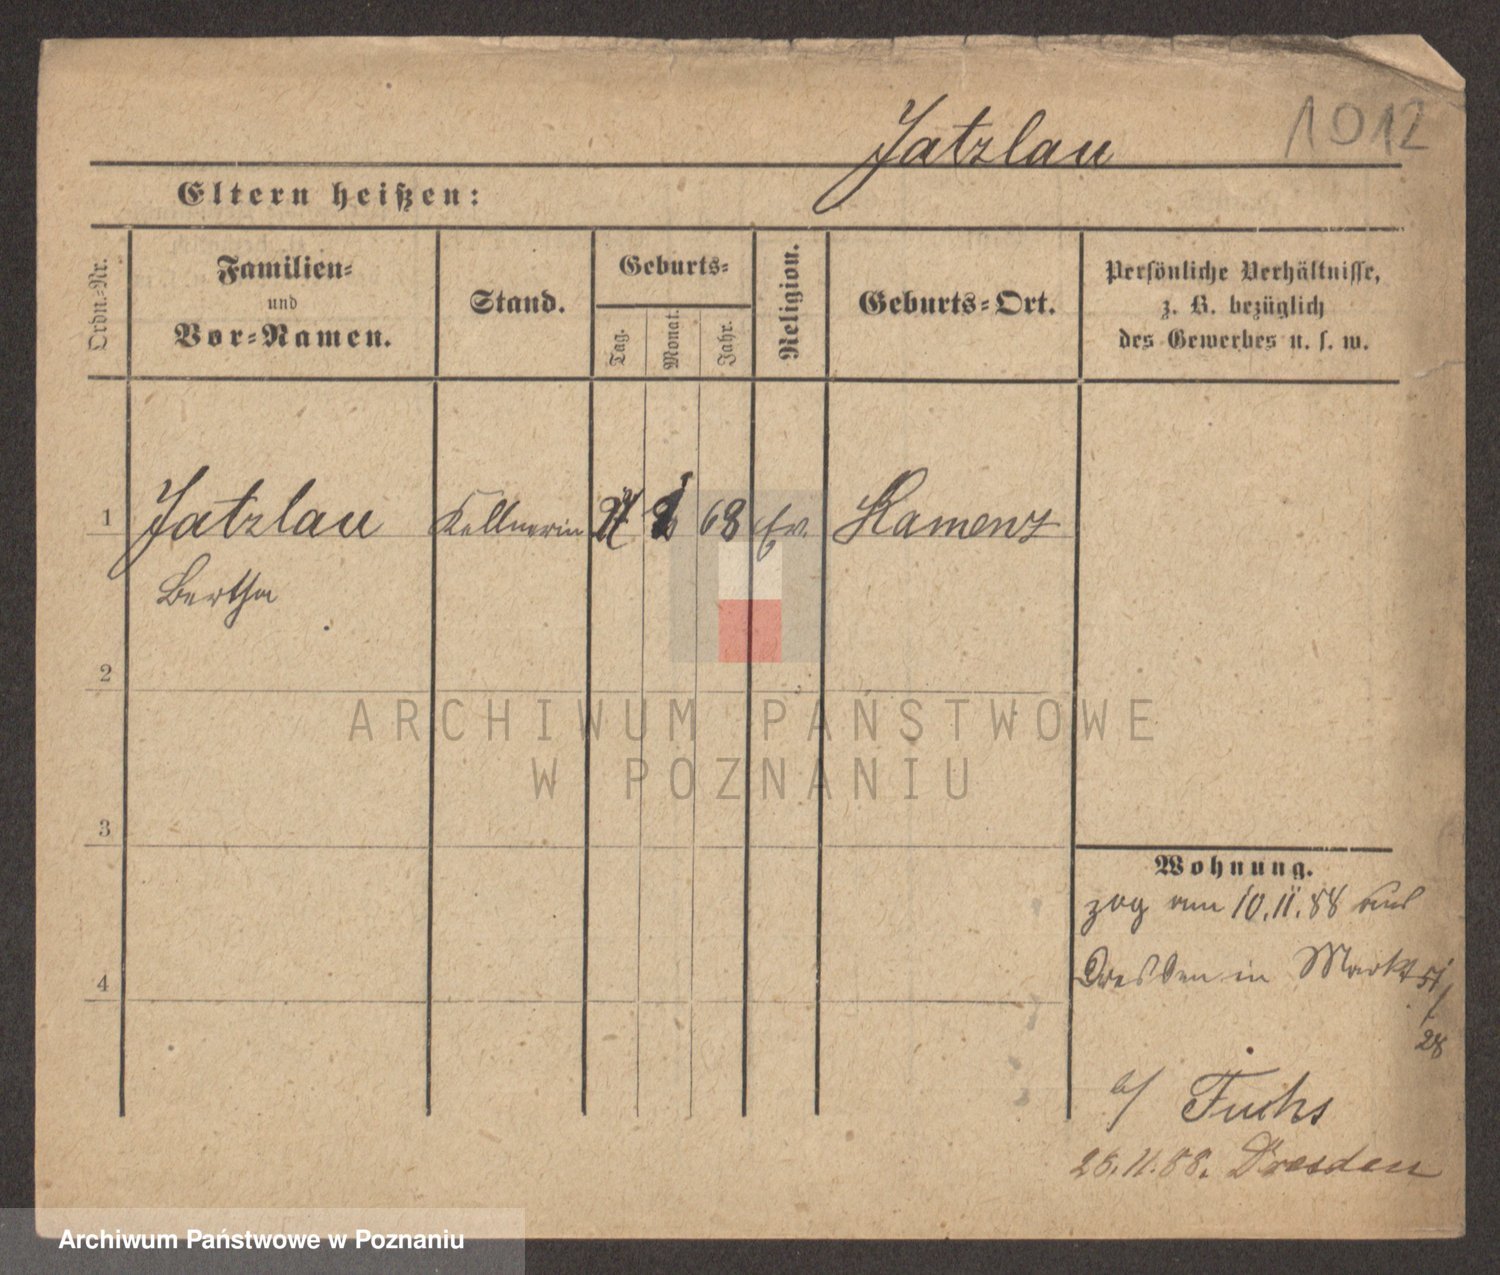 1012
Jatzlau
Eltern heißen:
Ordn.-Nr.
Familien-
und
Vor-Namen.
Stand.
Geburts-
Tag.
Monat.
Jahr.
Religion.
Geburts-Ort.
Persönliche Verhältnisse,
z. B. bezüglich
des Gewerbes u. s. w.
1 Jatzlau Kellnerin 68 Ev. Kamenz
Bertha
2
3
4
ARCHIWUM PAŃSTWOWE
W POZNANIU
Wohnung.
zog am 10.11.88 aus
Dresden in Markt 51/
28
b/ Fuchs
25.11.88. Dresden
Archiwum Państwowe w Poznaniu